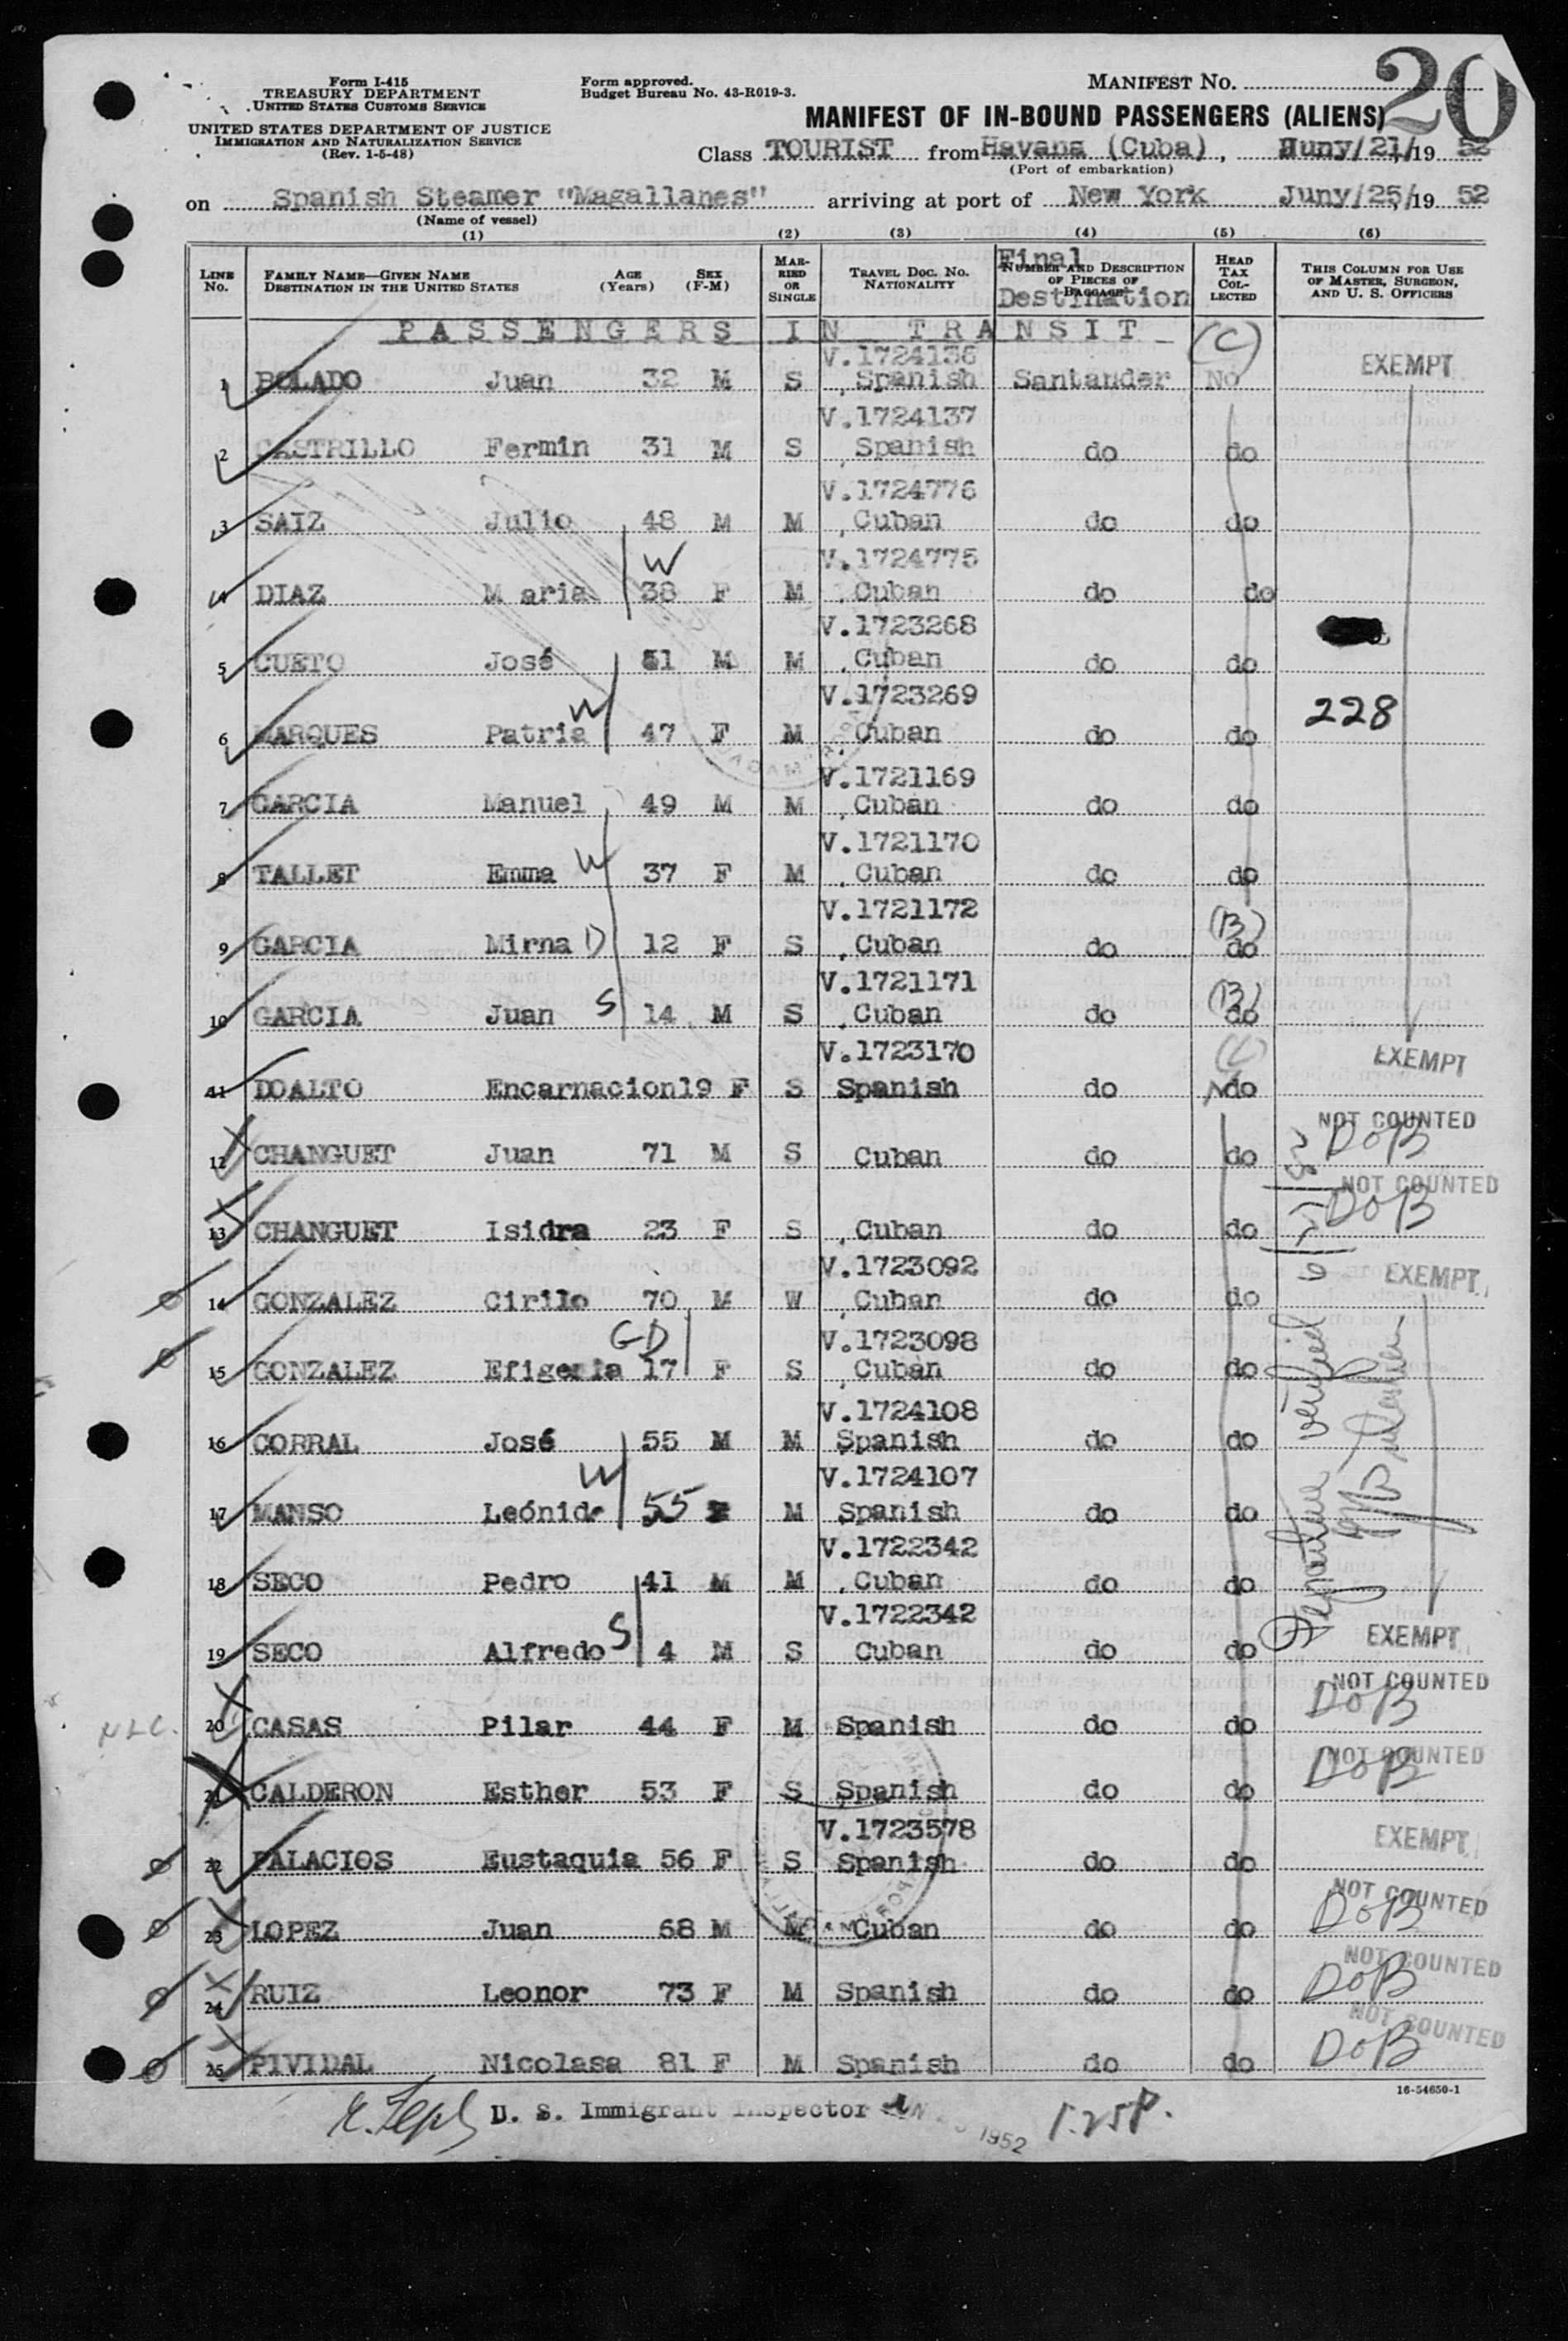 20
Form I-415
TREASURY DEPARTMENT
UNITED STATES CUSTOMS SERVICE
UNITED STATES DEPARTMENT OF JUSTICE
IMMIGRATION AND NATURALIZATION SERVICE
(Rev. 1-5-48)
Form approved.
Budget Bureau No. 43-R019-3.
MANIFEST No.
MANIFEST OF IN-BOUND PASSENGERS (ALIENS)
Class TOURIST from Havana (Cuba), Juny/21/19 52
(Port of embarkation)
on Spanish Steamer "Magallanes" arriving at port of New York Juny/25/19 52
(Name of vessel)
(1) (2) (3) (4) (5) (6)
LINE No. FAMILY NAME—GIVEN NAME DESTINATION IN THE UNITED STATES AGE (Years) SEX (F-M) MARRIED OR SINGLE TRAVEL DOC. NO. NATIONALITY Final NUMBER AND DESCRIPTION OF PIECES OF BAGGAGE Destination HEAD TAX COLLECTED THIS COLUMN FOR USE OF MASTER, SURGEON, AND U. S. OFFICERS
PASSENGERS IN TRANSIT (C)
V.1724136 EXEMPT
1 BOLADO Juan 32 M S Spanish Santander No
V.1724137
2 CASTRILLO Fermin 31 M S Spanish do do
V.1724776
3 SAIZ Julio 48 M M Cuban do do
W V.1724775
4 DIAZ M aria 38 F M Cuban do do
V.1723268
5 CUETO José 51 M M Cuban do do
W V.1723269 228
6 MARQUES Patria 47 F M Cuban do do
V.1721169
7 GARCIA Manuel 49 M M Cuban do do
V.1721170
8 TALLET Emma W 37 F M Cuban do do
V.1721172 (B)
9 GARCIA Mirna D 12 F S Cuban do do
V.1721171 (B)
10 GARCIA Juan S 14 M S Cuban do do
V.1723170 (C) EXEMPT
11 DOALTO Encarnacion19 F S Spanish do do
NOT COUNTED
12 CHANGUET Juan 71 M S Cuban do do DoB
NOT COUNTED
13 CHANGUET Isidra 23 F S Cuban do do DoB
V.1723092 EXEMPT
14 GONZALEZ Cirilo 70 M W Cuban do do
GD V.1723098
15 GONZALEZ Efigenia 17 F S Cuban do do
V.1724108
16 CORRAL José 55 M M Spanish do do
W V.1724107
17 MANSO Leónid 55 M Spanish do do
V.1722342
18 SECO Pedro 41 M M Cuban do do
V.1722342 EXEMPT
19 SECO Alfredo S 4 M S Cuban do do
Departure verified 6/
NOT COUNTED
20 CASAS Pilar 44 F M Spanish do do DoB
NOT COUNTED
21 CALDERON Esther 53 F S Spanish do do DoB
V.1723578 EXEMPT
22 PALACIOS Eustaquia 56 F S Spanish do do
NOT COUNTED
23 LOPEZ Juan 68 M M Cuban do do DoB
NOT COUNTED
24 RUIZ Leonor 73 F M Spanish do do DoB
NOT COUNTED
25 PIVIDAL Nicolasa 81 F M Spanish do do DoB
16-54650-1
U. S. Immigrant Inspector 1952 1:25P.